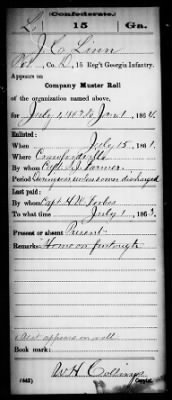 Confederate.
L 15 Ga.
J. C. Linn
Pvt., Co. D, 15 Reg't Georgia Infantry.
Appears on
Company Muster Roll
of the organization named above,
for July 1, 1863 to Jan 1, 1864.
Enlisted:
When July 15, 1861.
Where Crawfordville
By whom Capt.
Period
Last paid:
By whom Capt. Forbes
To what time July 1, 1863.
Present or absent Present
Remarks: Home on furlough
appears on roll
Book mark:
W H Collings
(642) Copyist.